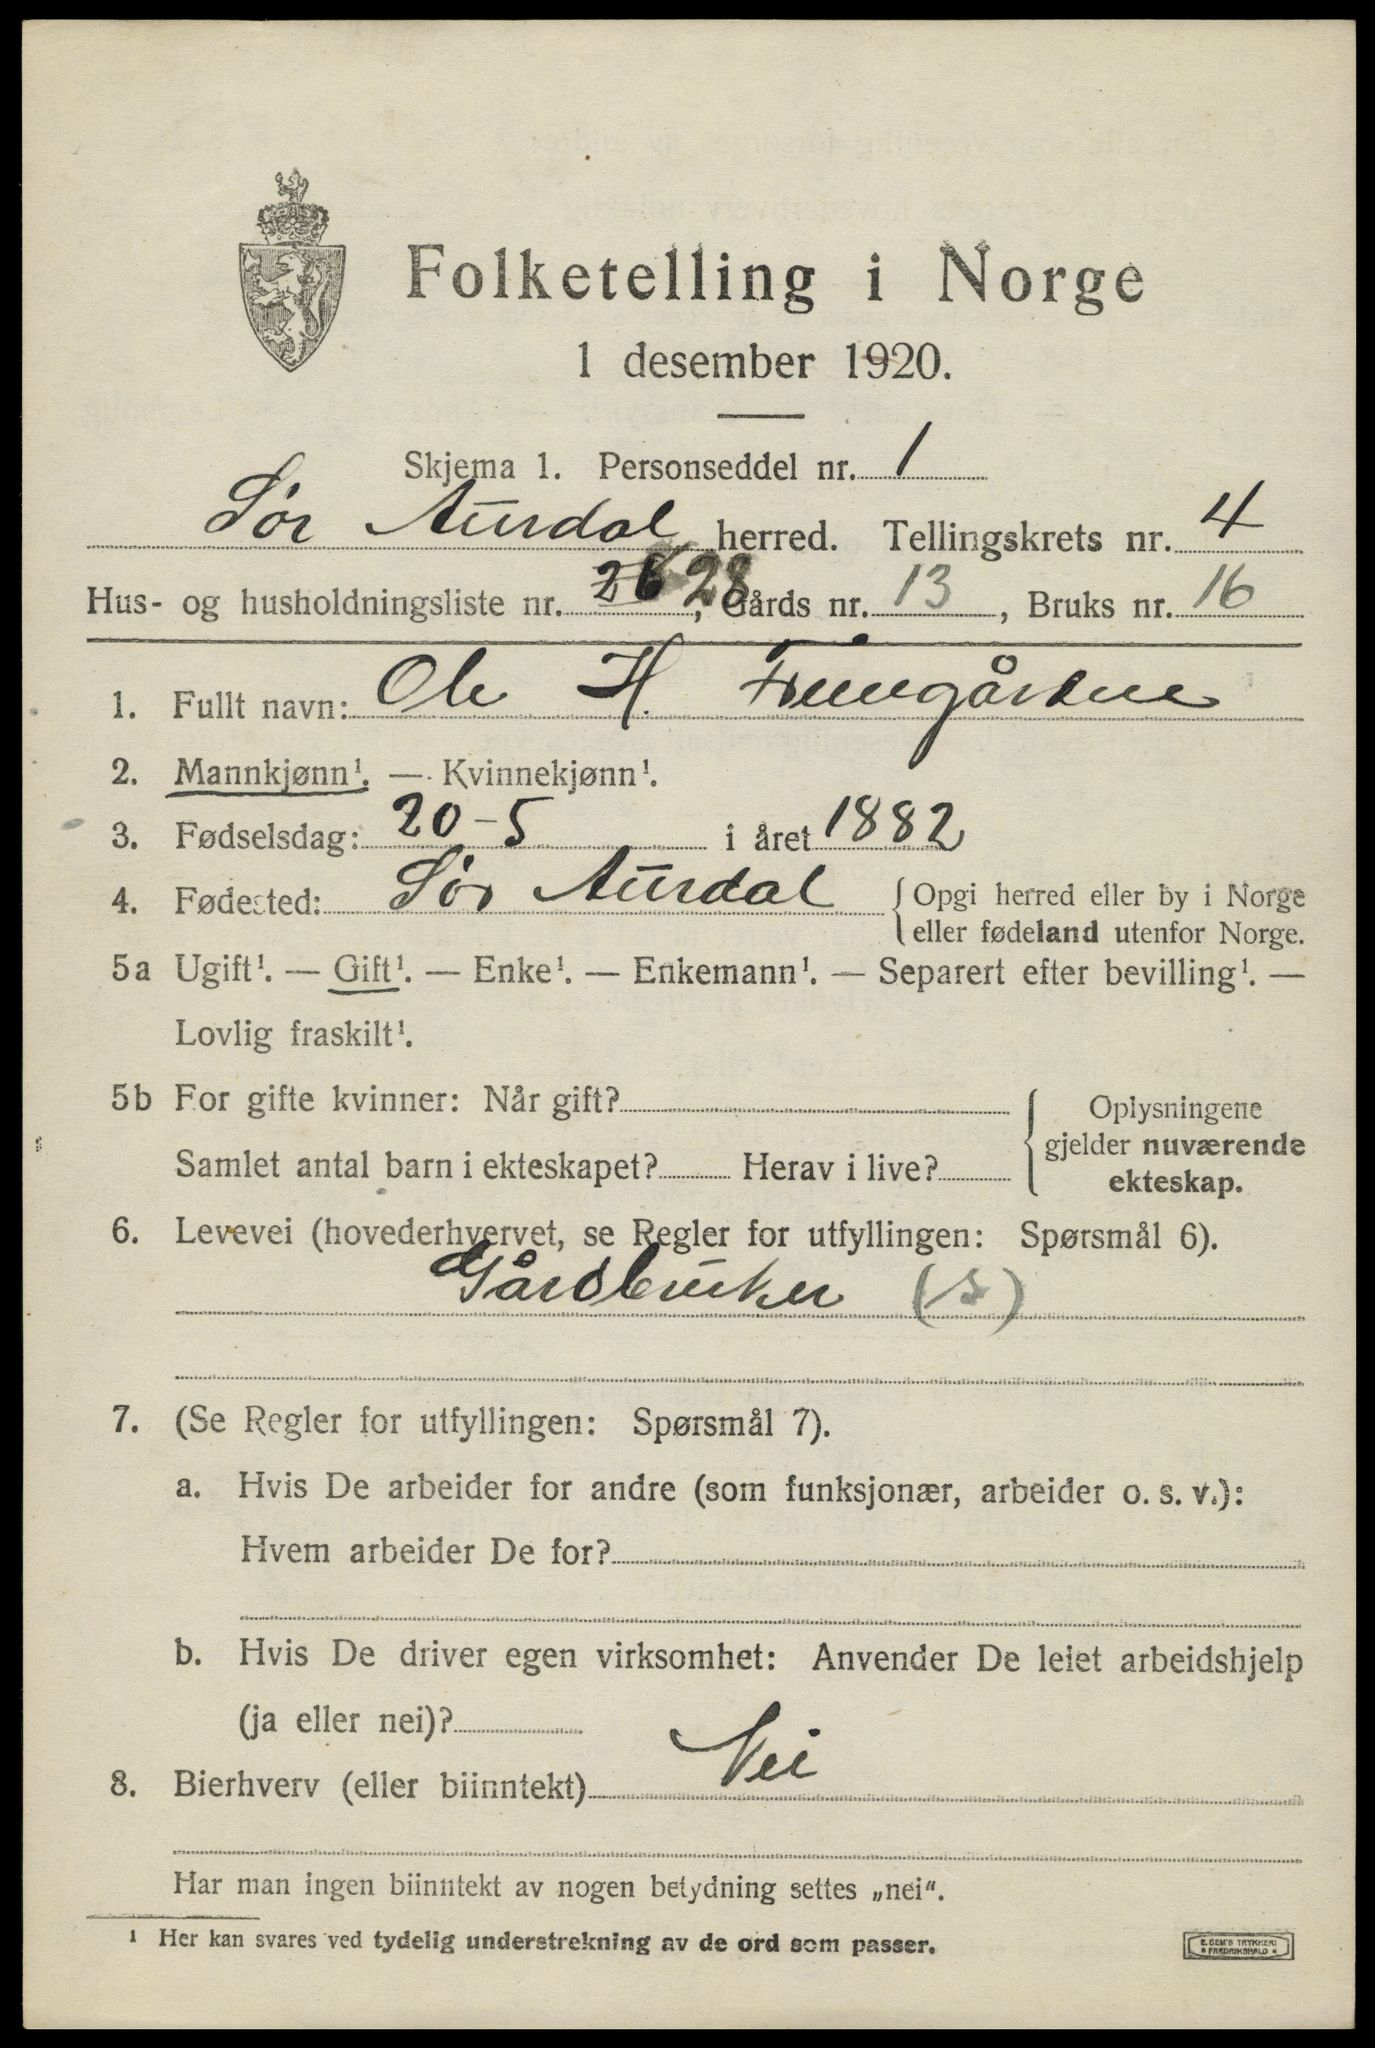 Folketelling i Norge
1 desember 1920.
Skjema 1. Personseddel nr. 1
Sør Aurdal herred. Tellingskrets nr. 4
Hus- og husholdningsliste nr. 26 28, Gårds nr. 13, Bruks nr. 16
1. Fullt navn: Ole H.
2. Mannkjønn¹. — Kvinnekjønn¹.
3. Fødselsdag: 20-5 i året 1882
4. Fødested: Sør Aurdal { Opgi herred eller by i Norge
eller fødeland utenfor Norge.
5a Ugift¹. — Gift¹. — Enke¹. — Enkemann¹. — Separert efter bevilling¹. —
Lovlig fraskilt¹.
5b For gifte kvinner: Når gift? { Oplysningene
gjelder nuværende
Samlet antal barn i ekteskapet? Herav i live?
ekteskap.
6. Levevei (hovederhvervet, se Regler for utfyllingen: Spørsmål 6).
Gårdbruker (s)
7. (Se Regler for utfyllingen: Spørsmål 7).
a. Hvis De arbeider for andre (som funksjonær, arbeider o. s. v.):
Hvem arbeider De for?
b. Hvis De driver egen virksomhet: Anvender De leiet arbeidshjelp
(ja eller nei)?
8. Bierhverv (eller biinntekt) Nei
Har man ingen biinntekt av nogen betydning settes „nei".
¹ Her kan svares ved tydelig understrekning av de ord som passer.
E. SEM'S TRYKKERI
FREDRIKSHALD